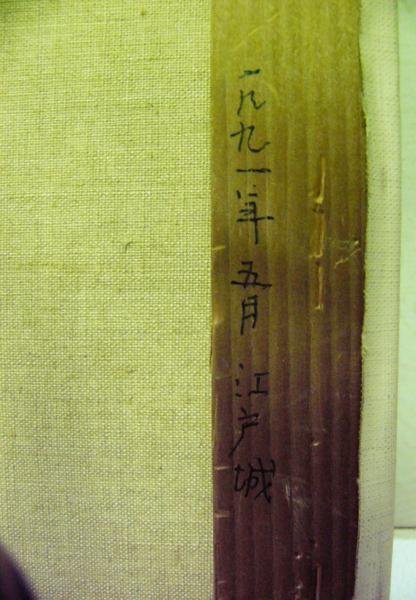 一九九一年 五月 江户城